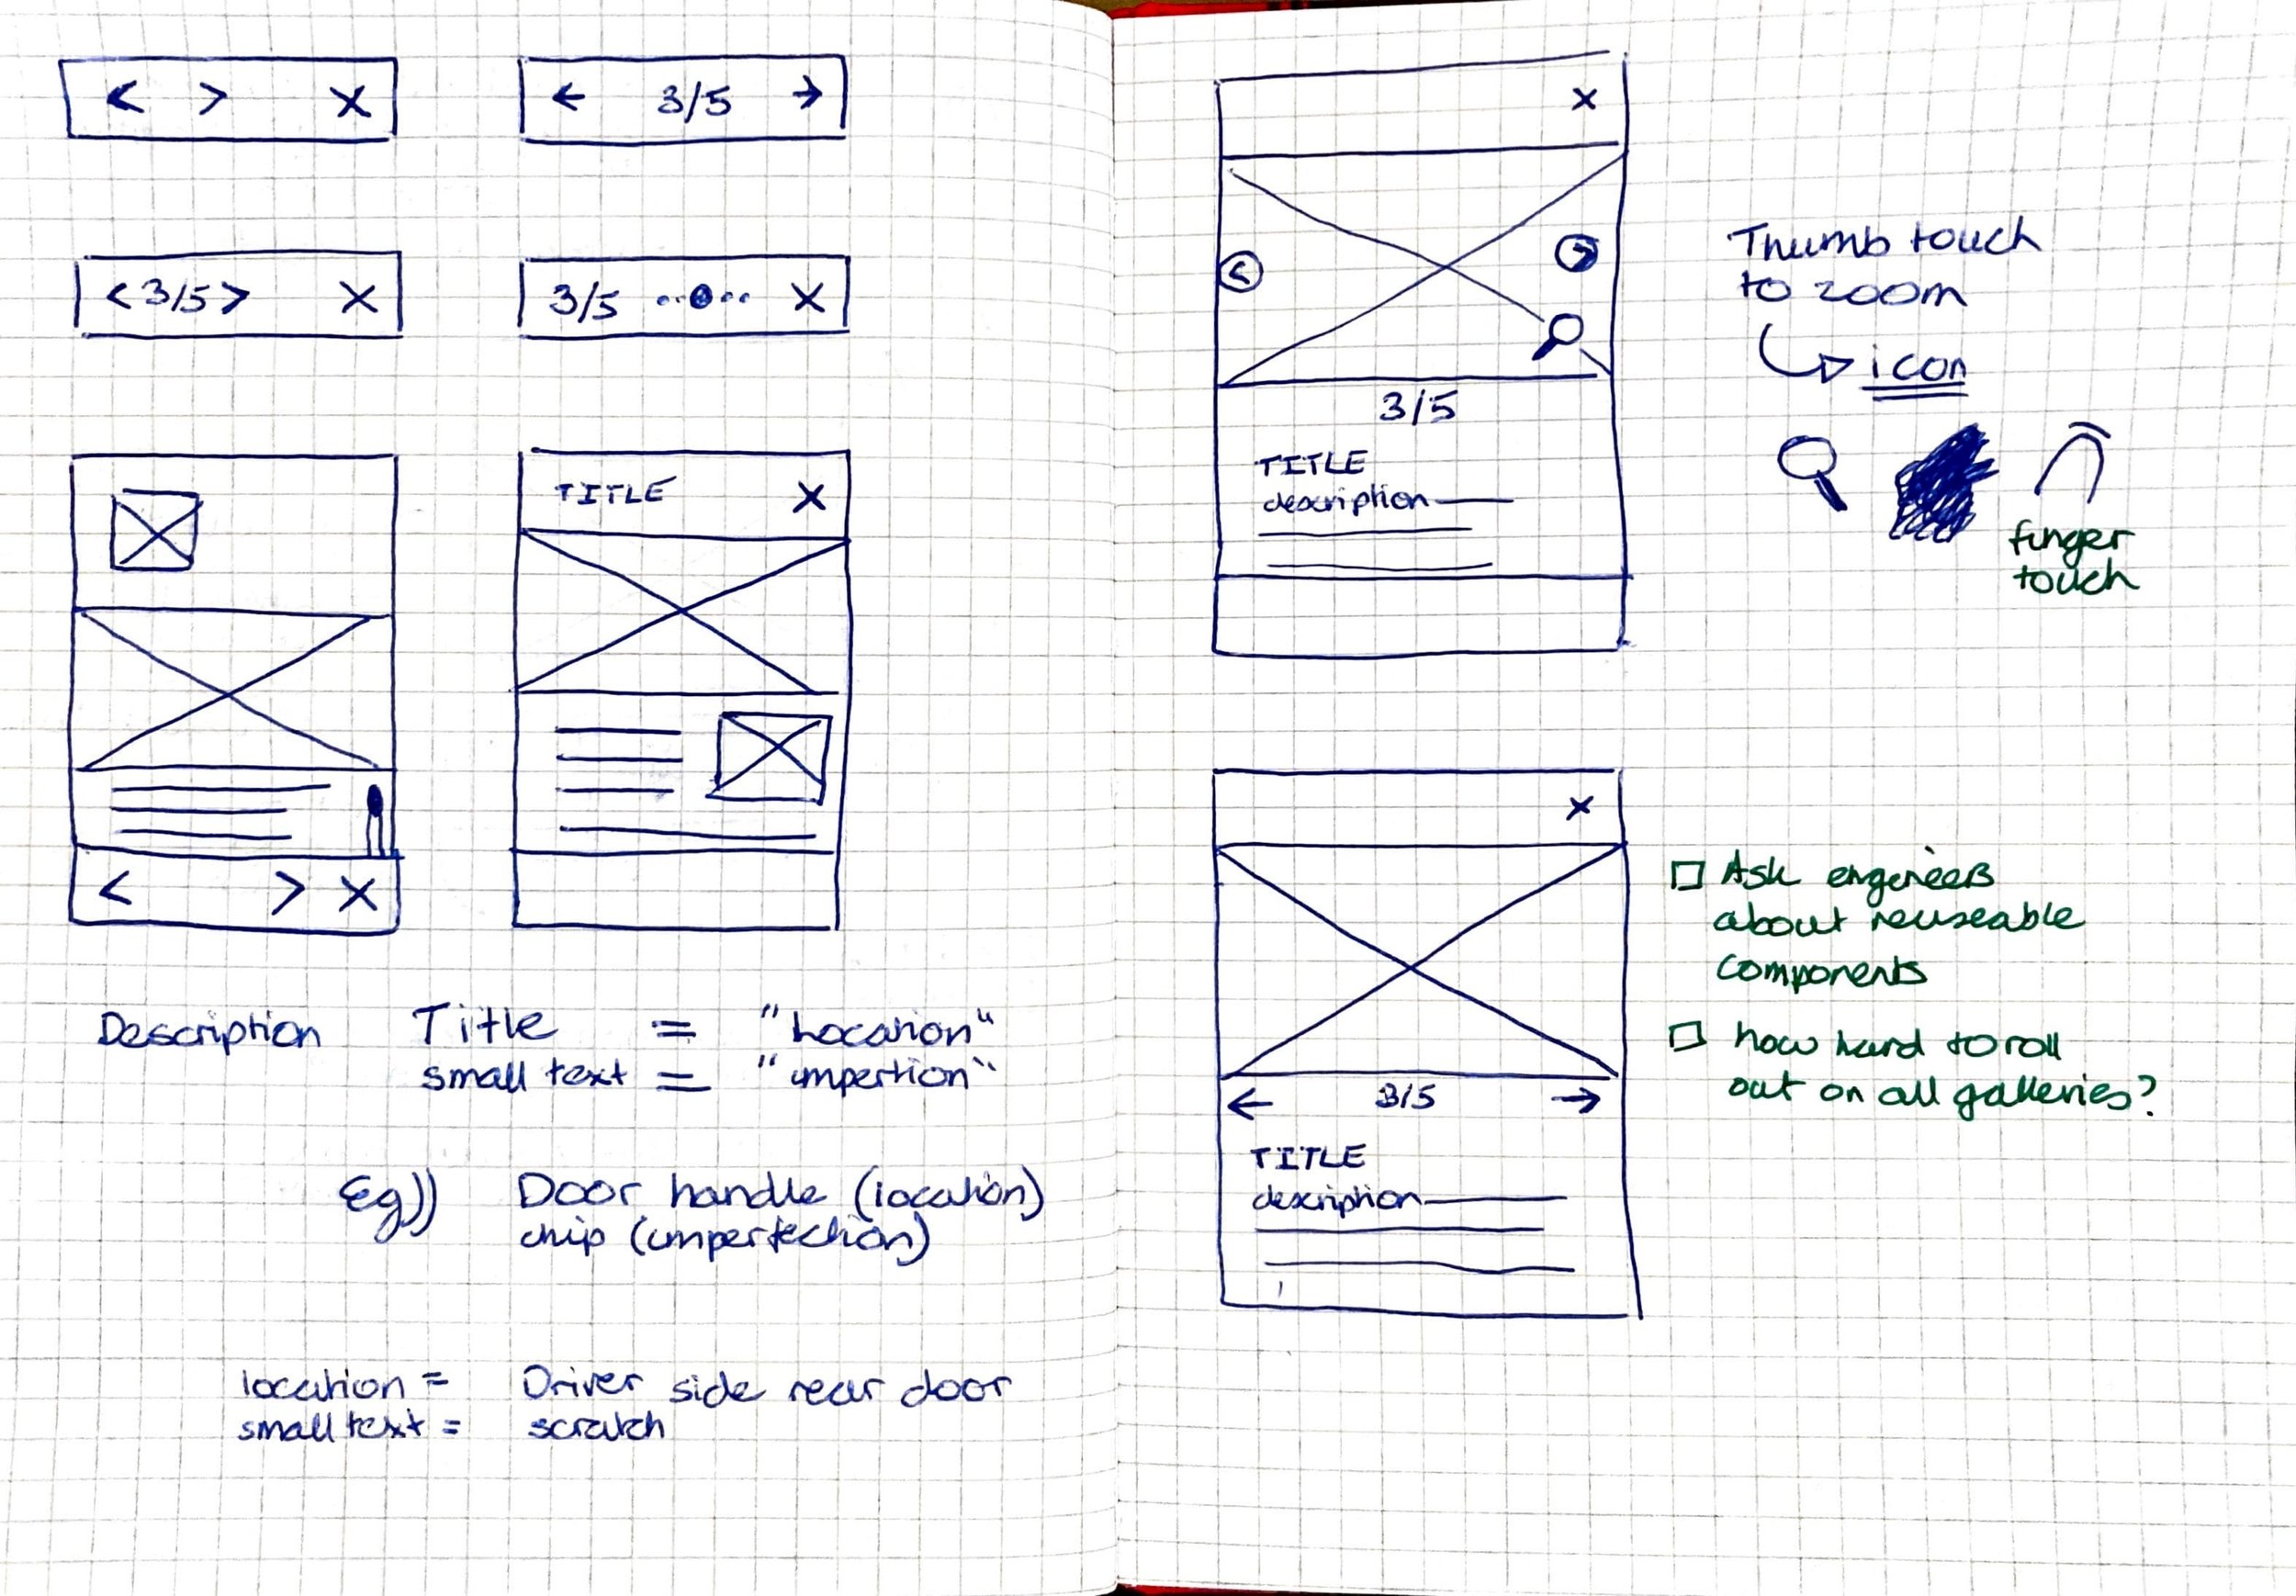 < > X
← 3/5 →
< 3/5 > X
3/5 X
TITLE X
< > X
Description Title = "Location"
small text = "impertion"
Eg)) Door handle (location)
chip (imperfection)
location = Driver side rear door
small text = scratch
X
<
>
3/5
TITLE
description
Thumb touch
to zoom
icon
finger
touch
X
← 3/5 →
TITLE
description
Ask engineers
about reuseable
components
how hard to roll
out on all galleries?